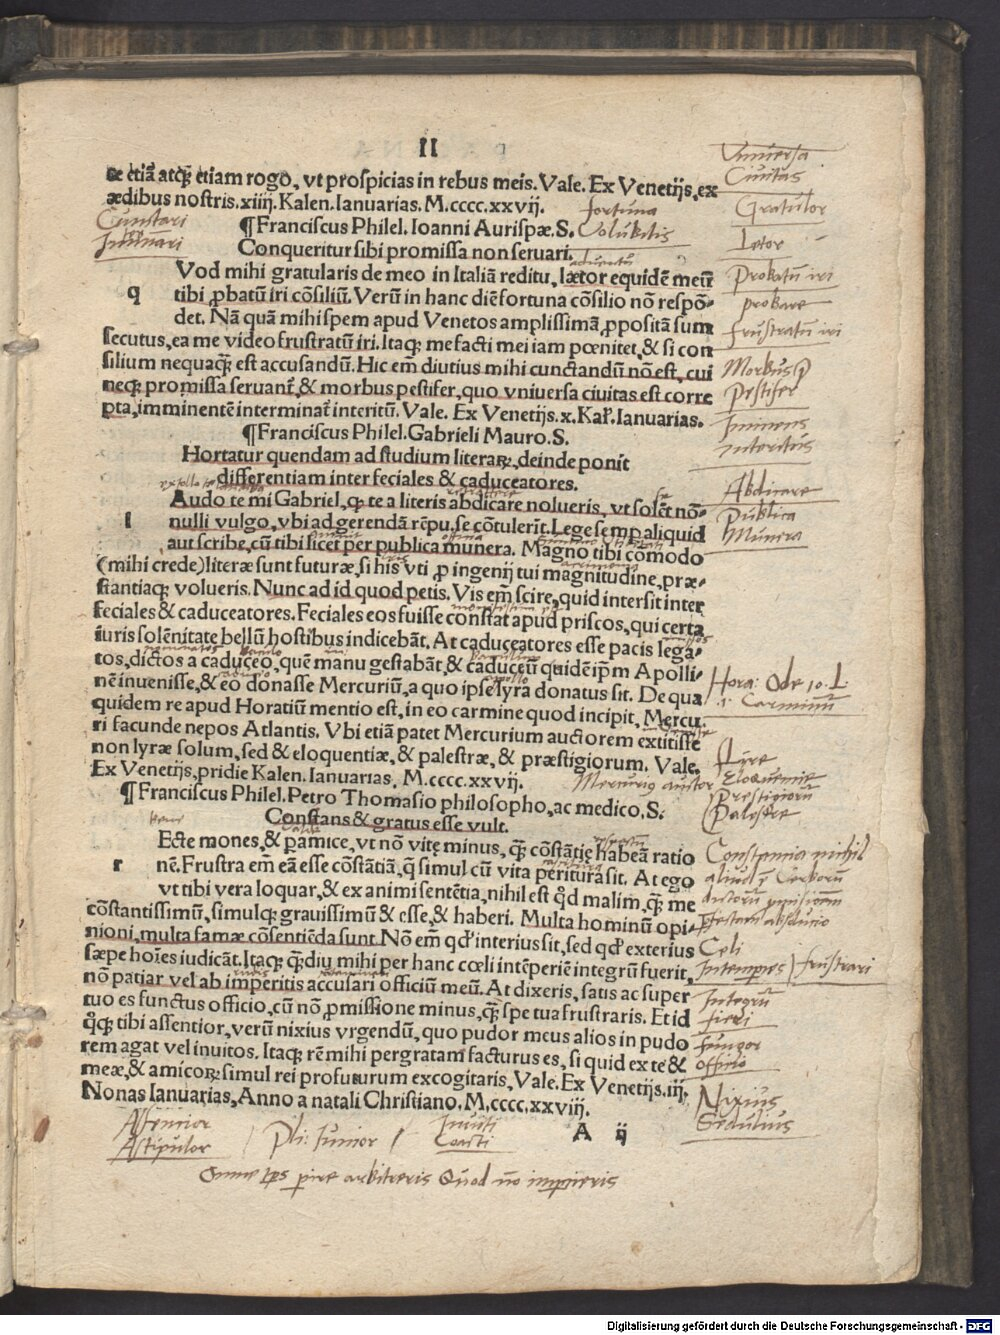 II
te etiā atq; etiam rogo, vt prospicias in rebus meis. Vale. Ex Venetijs, ex
ædibus nostris. xiiij. Kalen. Ianuarias. M.cccc.xxvij.
¶Franciscus Philel. Ioanni Aurispæ. S.
Conqueritur sibi promissa non seruari.
q
Vod mihi gratularis de meo in Italiā reditu, lætor equidē meū
tibi ꝓbatū iri cōsiliū. Verū in hanc diē fortuna cōsilio nō respō-
det. Nā quā mihi spem apud Venetos amplissimā ꝓpositā sum
secutus, ea me video frustratū iri. Itaq; me facti mei iam pœnitet, & si con
silium nequaq̄ est accusandū. Hic em̄ diutius mihi cunctandū nō est, cui
neq; promissa seruant̄, & morbus pestifer, quo vniuersa ciuitas est corre
pta, imminentē interminat̄ interitū. Vale. Ex Venetijs. x. Kal̄. Ianuarias.
¶Franciscus Philel. Gabrieli Mauro. S.
Hortatur quendam ad studium literaꝝ, deinde ponit
differentiam inter feciales & caduceatores.
l
Audo te mi Gabriel, q; te a literis abdicare nolueris, vt solēt nō-
nulli vulgo, vbi ad gerendā rēpu. se cōtulerīt. Lege semp aliquid
aut scribe, cū tibi licet per publica munera. Magno tibi cōmodo
(mihi crede) literæ sunt futuræ, si his vti ꝓ ingenij tui magnitudine, præ-
stantiaq; volueris. Nunc ad id quod petis. Vis em̄ scire, quid intersit inter
feciales & caduceatores. Feciales eos fuisse constat apud priscos, qui certa
iuris solēnitate bellū hostibus indicebāt. At caduceatores esse pacis lega-
tos, dictos a caduceo, quē manu gestabāt, & caduceū quidē ip̄m Apolli-
nē inuenisse, & eo donasse Mercuriū, a quo ipse lyra donatus sit. De qua
quidem re apud Horatiū mentio est, in eo carmine quod incipit, Mercu-
ri facunde nepos Atlantis. Vbi etiā patet Mercurium auctorem extitisse
non lyræ solum, sed & eloquentiæ, & palestræ, & præstigiorum. Vale.
Ex Venetijs, pridie Kalen. Ianuarias. M.cccc.xxvij.
¶Franciscus Philel. Petro Thomasio philosopho, ac medico. S.
Constans & gratus esse vult.
r
Ecte mones, & pamice, vt nō vitę minus, q̄ cōstātię habeā ratio
nē. Frustra em̄ eā esse cōstātiā, q̄ simul cū vita peritura sit. At ego
vt tibi vera loquar, & ex animi sentētia, nihil est qd̄ malim, q̄ me
cōstantissimū, simulq; grauissimū & esse, & haberi. Multa hominū opi-
nioni, multa famæ cōsentiēda sunt. Nō em̄ qd̄ interius sit, sed qd̄ exterius
sæpe hoīes iudicāt. Itaq; q̄diu mihi per hanc cœli intēperiē integrū fuerit,
nō patiar vel ab imperitis accusari officiū meū. At dixeris, satis ac super
tuo es functus officio, cū nō ꝓmissione minus, q̄ spe tua frustraris. Et id
q̄q; tibi assentior, verū nixius vrgendū, quo pudor meus alios in pudo
rem agat vel inuitos. Itaq; rē mihi pergratam facturus es, si quid ex te &
meæ, & amicoꝝ simul rei profuturum excogitaris. Vale. Ex Venetijs. iij.
Nonas Ianuarias, Anno a natali Christiano. M.cccc.xxviij.
A ij
Vniuersa
Ciuitas
Gratulor
Letor
Probatū iri
probare
frustratū iri
Morbus
Pestifer
Iminens
interitus
Abdicare
Publica
Munera
Hora: Ode 10 L
Carminū
Lyre
Eloquentie
Prestigiorū
Palestre
Mercurius auctor
Constantia nihil
Celi
Intemperies
frustrari
Integrū
fungor
officio
Nixius
Sedulius
Cunctari
fortuna
Volubilis
Assentior
Astipulor
Pli: Iunior
Inuiti
Coacti
Digitalisierung gefördert durch die Deutsche Forschungsgemeinschaft - DFG